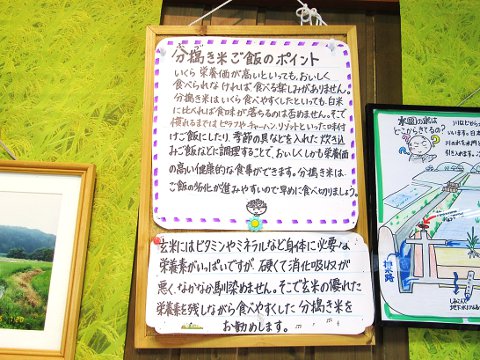 分搗き米ご飯のポイント
いくら栄養価が高いといっても、おいしく
食べられなければ食べる楽しみがありません。
分搗き米はいくら食べやすくしたといっても、白米
に比べれば食味が落ちるのは否めません。そこで
慣れるまではピラフやチャーハン、リゾットといった味付
けご飯にしたり、季節の具などを入れた炊き込
みご飯などに調理することで、おいしくしかも栄養価
の高い健康的な食事ができます。分搗き米は
ご飯の劣化が進みやすいので早めに食べ切りましょう。
玄米にはビタミンやミネラルなど身体に必要な
栄養素がいっぱいですが、硬くて消化吸収が
悪く、なかなか馴染めません。そこで玄米の優れた
栄養素を残しながら食べやすくした分搗き米を
お勧めします。
水田の水は
どこからきてるの?